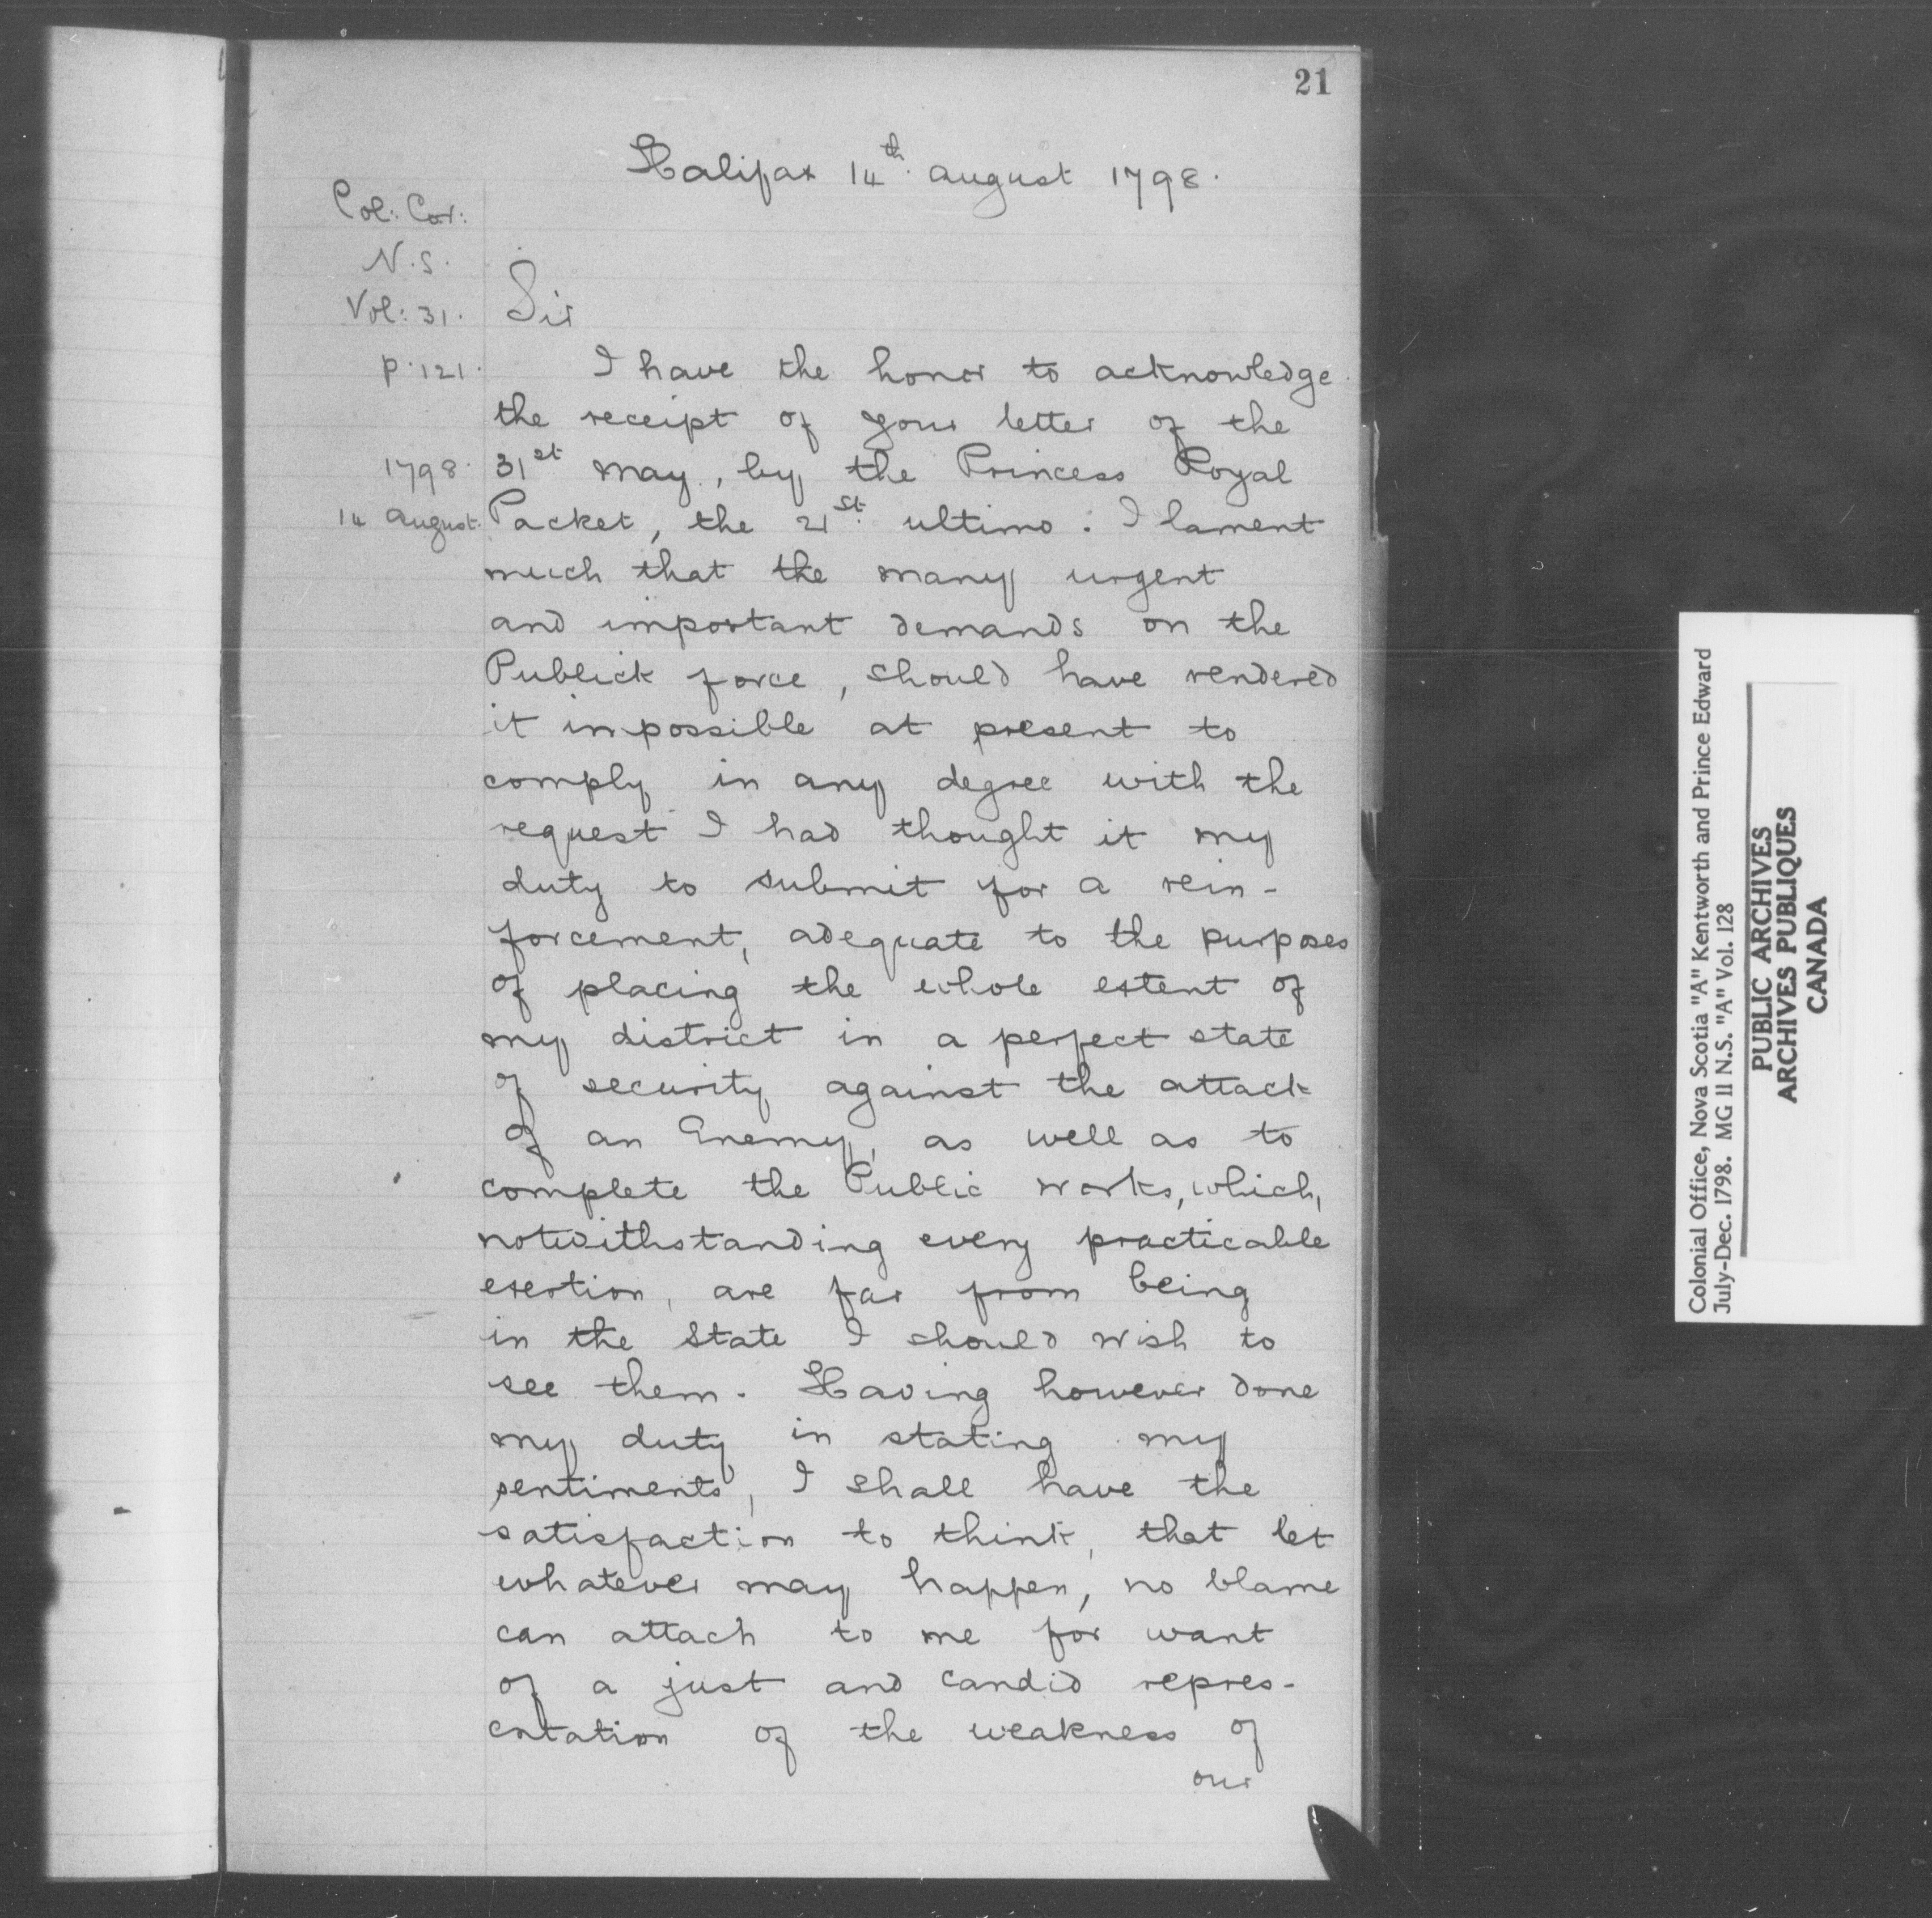 21
Halifax 14th. August 1798.
Col: Cor:
N.S.
Vol: 31.
p. 121.
1798.
14 August.
Sir
I have the honor to acknowledge
the receipt of your letter of the
31st May, by the Princess Royal
Packet, the 21st. ultimo. I lament
much that the many urgent
and important demands on the
Publick force, should have rendered
it impossible at present to
comply in any degree with the
request I had thought it my
duty to submit for a rein-
forcement, adequate to the purposes
of placing the whole extent of
my district in a perfect state
of security against the attack
of an Enemy, as well as to
complete the Public works, which,
notwithstanding every practicable
exertion, are far from being
in the State I should wish to
see them. Having however done
my duty in stating my
sentiments, I shall have the
satisfaction to think, that let
whatever may happen, no blame
can attach to me for want
of a just and candid repres-
entation of the weakness of
our
Colonial Office, Nova Scotia "A" Kentworth and Prince Edward
July-Dec. 1798. MG 11 N.S. "A" Vol. 128
PUBLIC ARCHIVES
ARCHIVES PUBLIQUES
CANADA